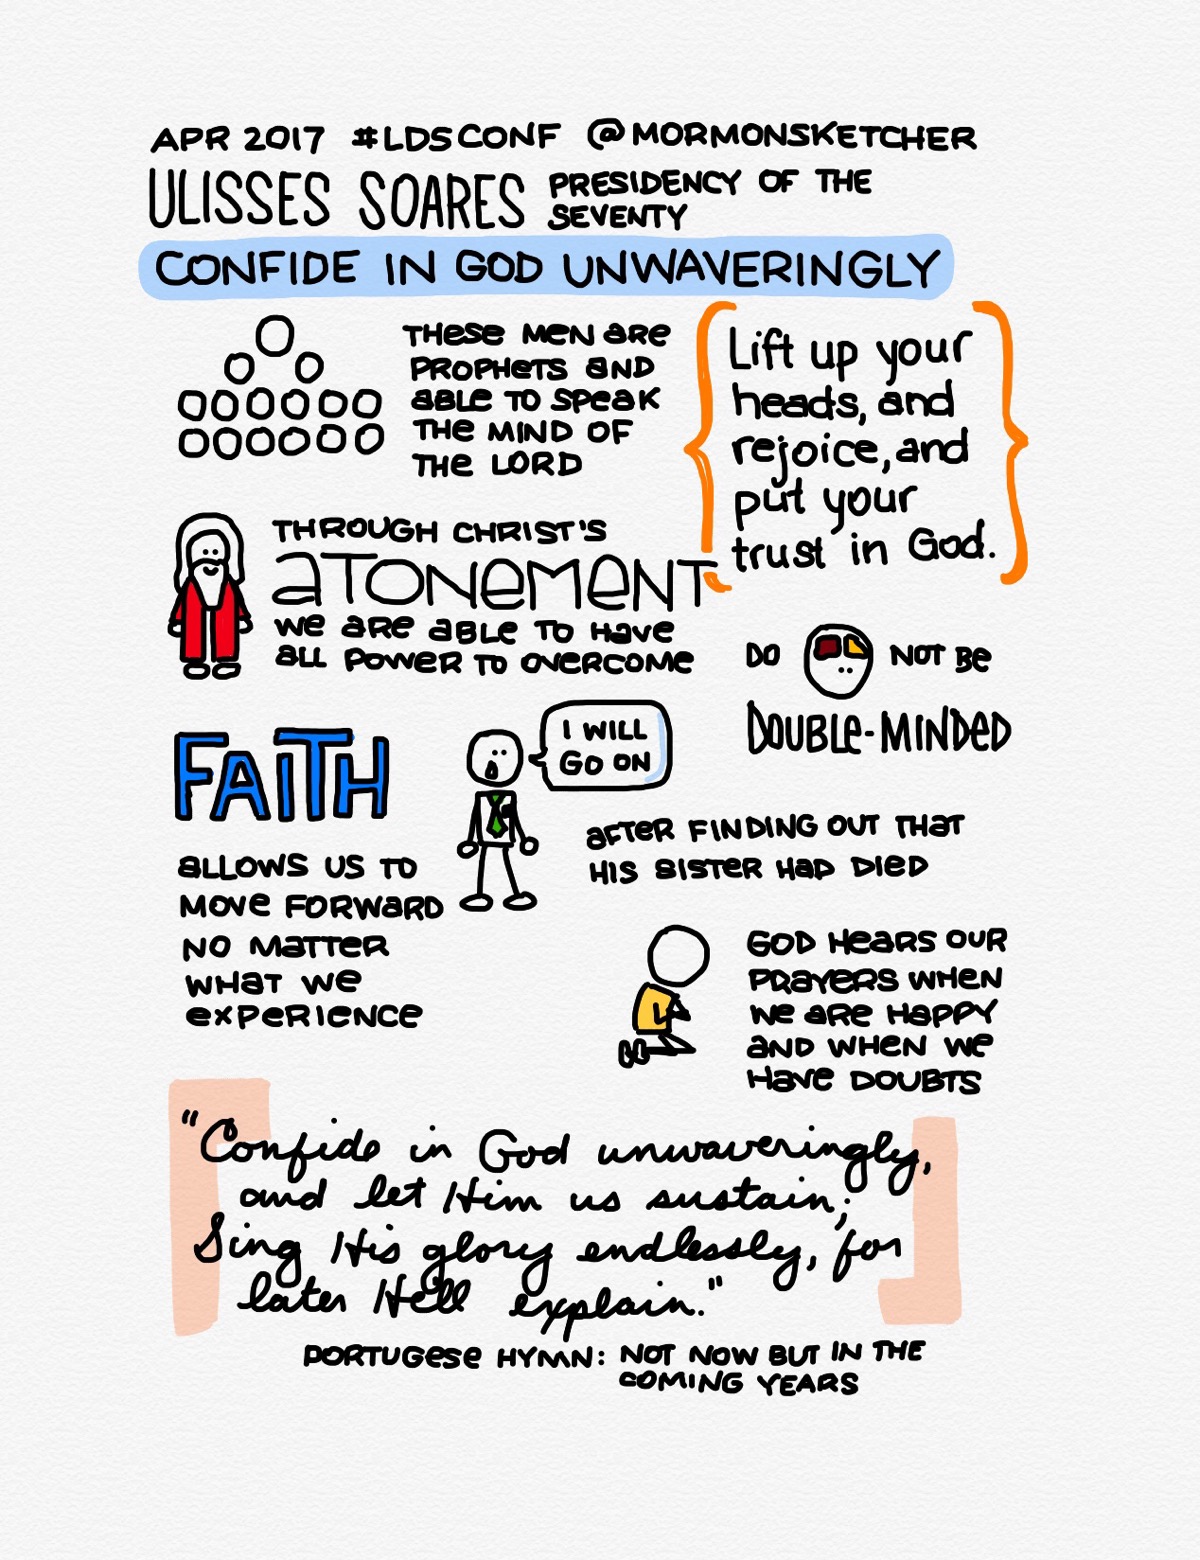 APR 2017 #LDSCONF @MORMONSKETCHER
ULISSES SOARES PRESIDENCY OF THE
SEVENTY
CONFIDE IN GOD UNWAVERINGLY
THESE MEN ARE
PROPHETS AND
ABLE TO SPEAK
THE MIND OF
THE LORD
Lift up your
heads, and
rejoice, and
put your
trust in God.
THROUGH CHRIST'S
ATONEMENT
WE ARE ABLE TO HAVE
ALL POWER TO OVERCOME
DO NOT BE
DOUBLE-MINDED
FAITH
ALLOWS US TO
MOVE FORWARD
NO MATTER
WHAT WE
EXPERIENCE
I WILL
GO ON
AFTER FINDING OUT THAT
HIS SISTER HAD DIED
GOD HEARS OUR
PRAYERS WHEN
WE ARE HAPPY
AND WHEN WE
HAVE DOUBTS
"Confide in God unwaveringly,
and let Him us sustain;
Sing His glory endlessly, for
later He'll explain."
PORTUGESE HYMN: NOT NOW BUT IN THE
COMING YEARS